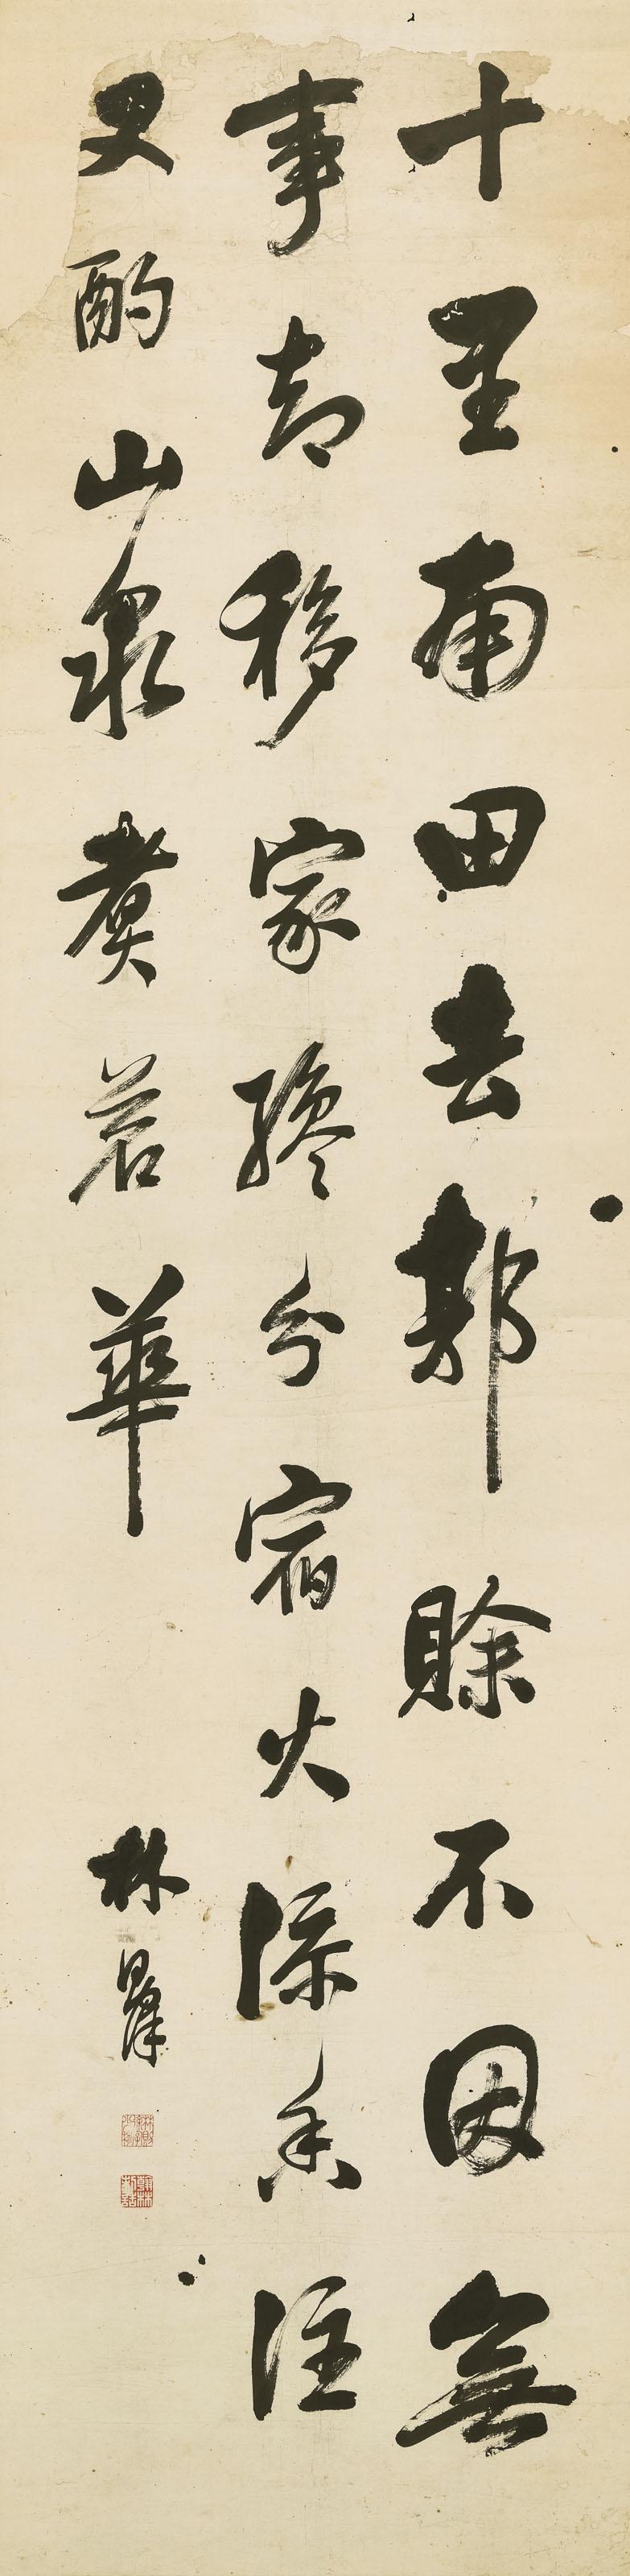 十里南田去郭賒不因無
事却移家纔分宿火添香注
又酌山泉煮茗華
林